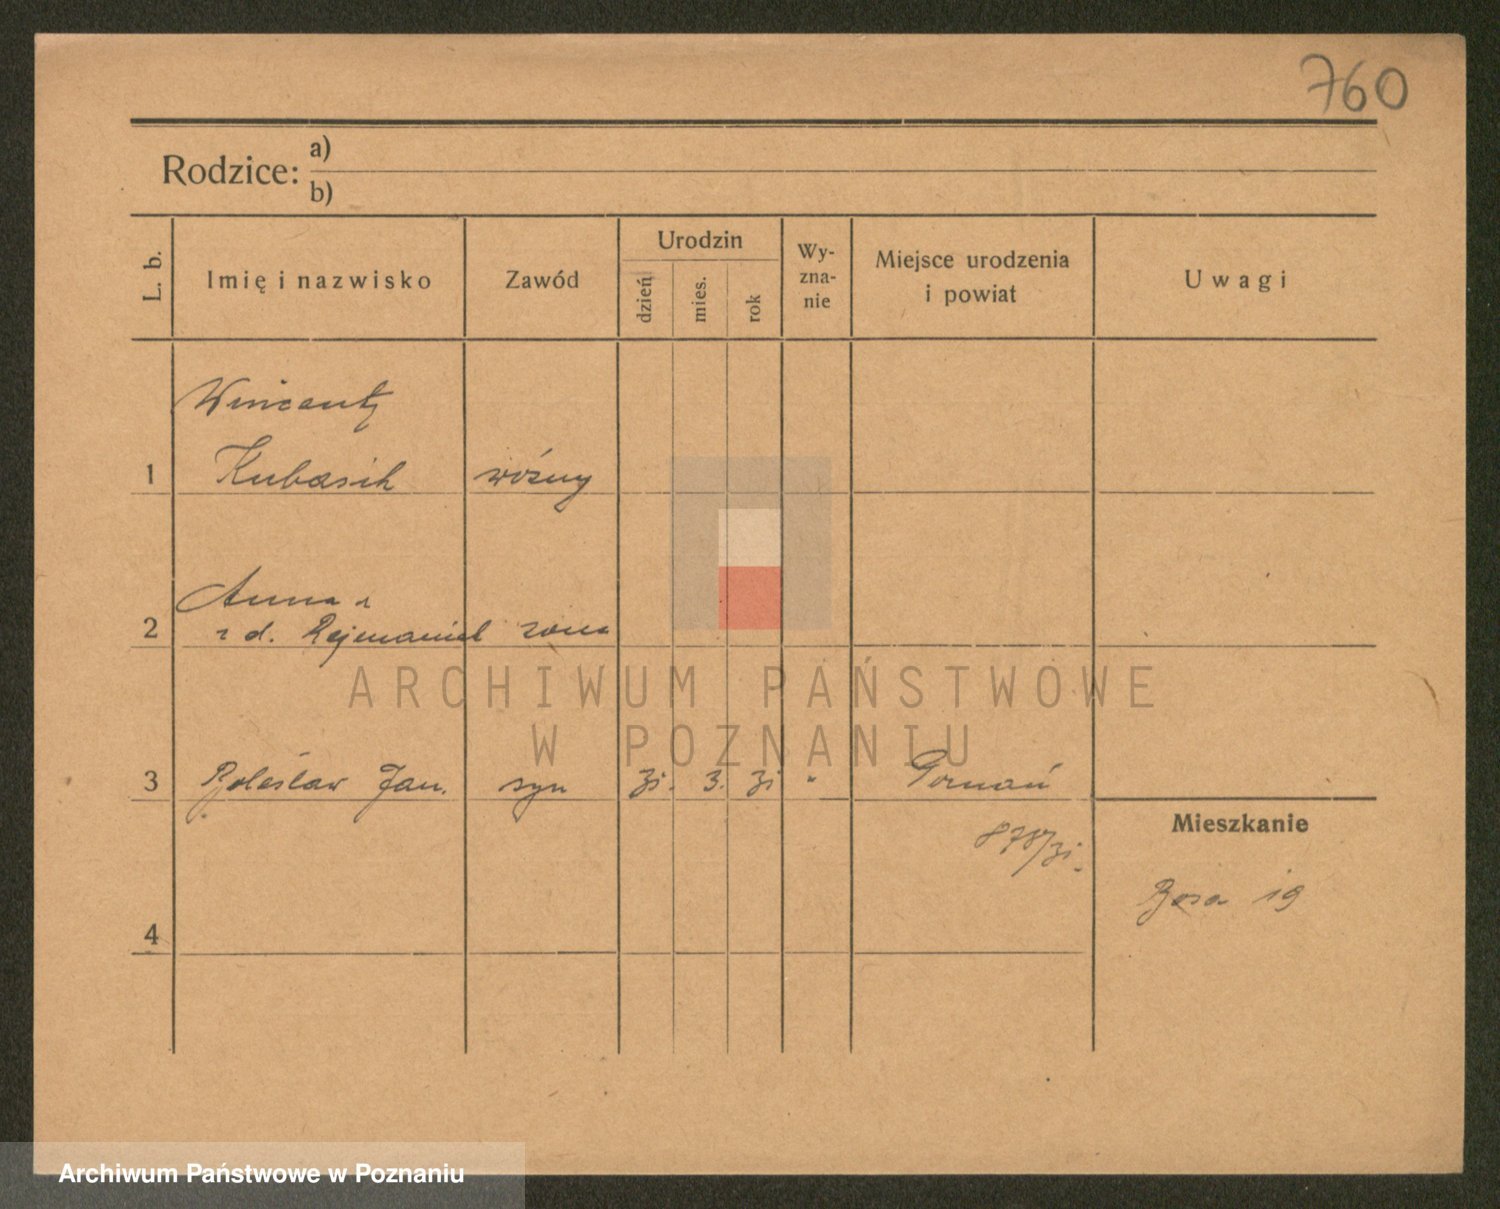 760
Rodzice: a)
b)
L. b.
Imię i nazwisko
Zawód
Urodzin
dzień
mies.
rok
Wy-
zna-
nie
Miejsce urodzenia
i powiat
Uwagi
Wincenty
1 Kubasik woźny
Anna
2 z d. żona
ARCHIWUM PAŃSTWOWE
W POZNANIU
3 Bolesław Jan. syn 31. 3. 31 " Poznań
Mieszkanie
878/31.
19
4
Archiwum Państwowe w Poznaniu